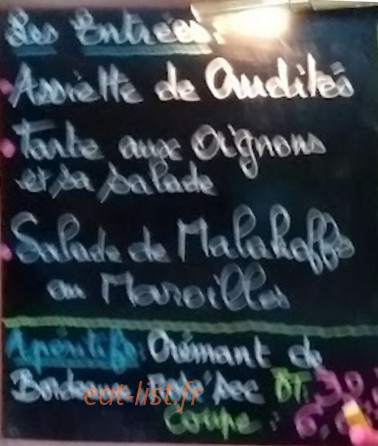 Les Entrées:
Assiette de Crudités
Tarte aux Oignons
et sa salade
Salade de Malakoffs
au Maroilles
Apéritifs: Crémant de
Bordeaux sec BT. 30
Coupe: 6,
eat-list.fr